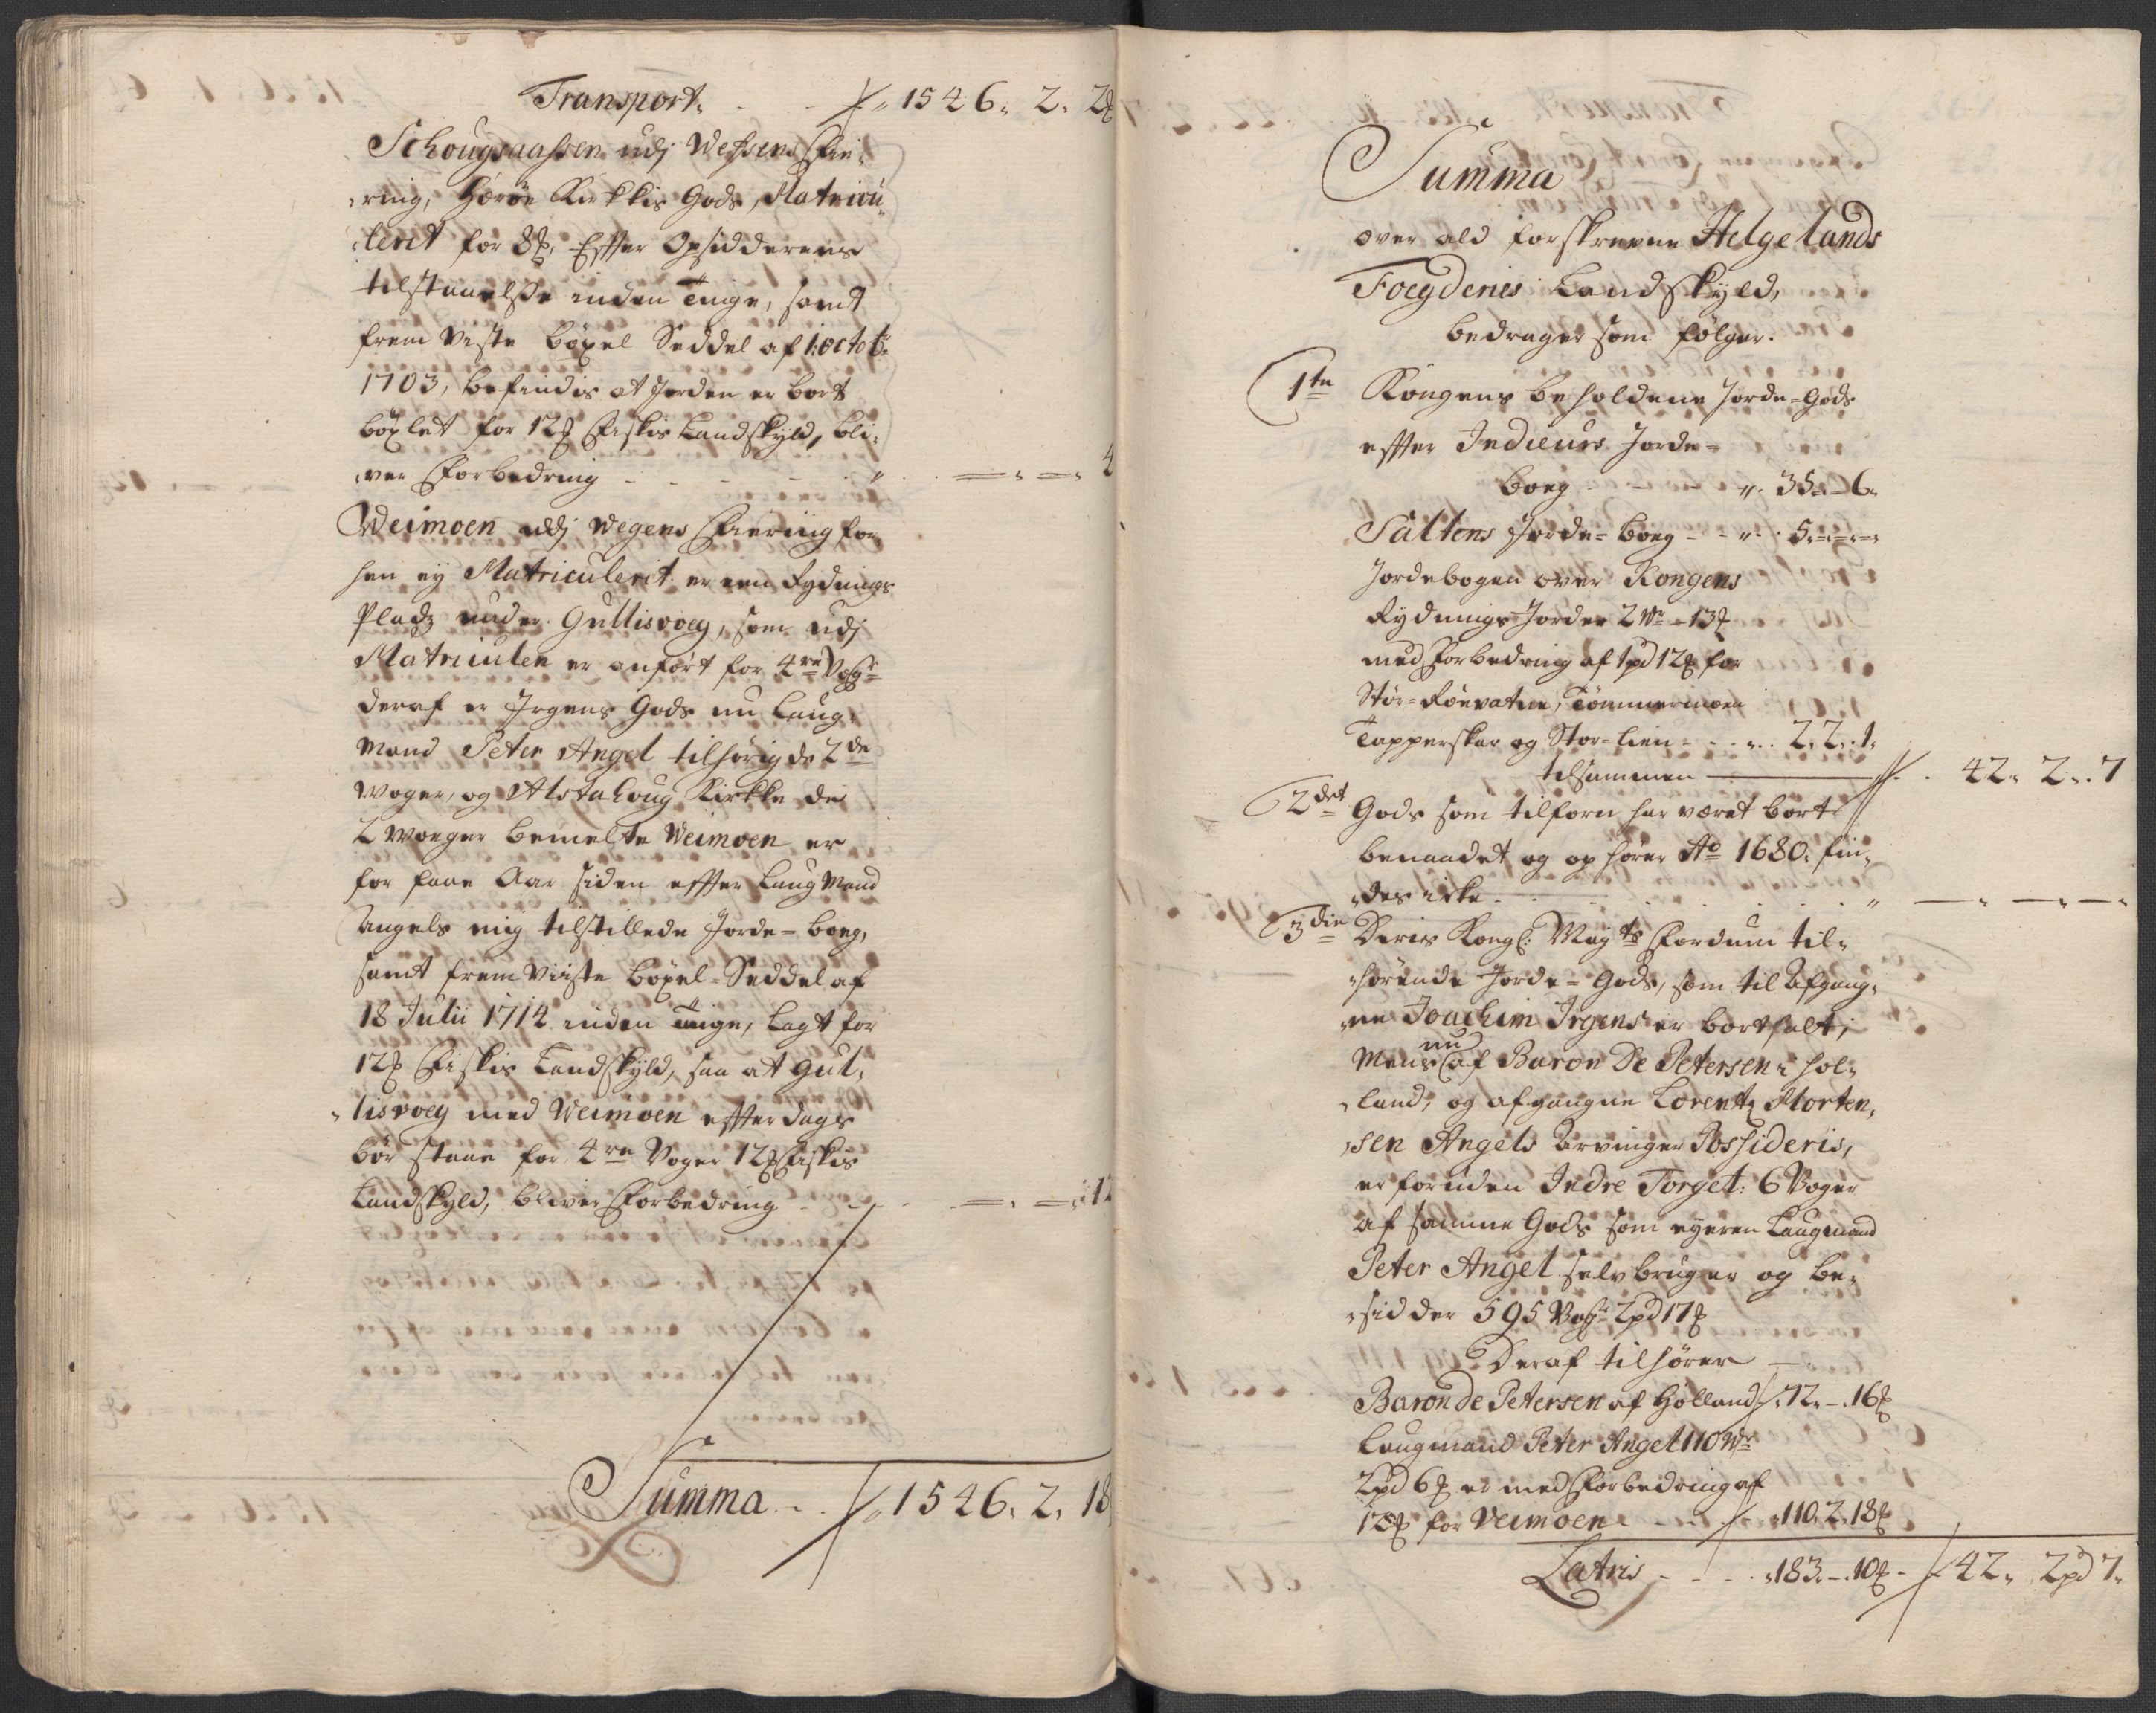 Transport. - - 1546. 2. 2
Schougsaassen udj Wefsens Fie-
ring, Herøe Kirkkis Gods, Matricu-
lerit for 8, Effter Opsidderens
tilstaaelsse inden Tinge, samt
frem viste böxel Seddel af 1: octob:
1703, befindis at Jorden er bort
böxlet for 12 Fiskis Landskyld, bli-
ver Forbedring - - - - - " =. =. 4
Weimoen udj Wegens Fiering for
hen ey Matriculerit er een Rydnings
Pladz under Gullisvoeg, som udj
Matriculen er anført for 4re Vogr
deraf er Jrgens Gods nu Laug-
Mand Peter Angel tilhørig de 2de
Woger, og Alstahoug Kirkke de
2 Woeger bemelte Weimoen er
for faae Aar siden effter Laug Mand
Angels mig tilstillede Jorde-boeg,
samt frem viiste böxel-Seddel af
18 Julii 1714 inden Tinge, Lagt for
12 Fiskis Landskyld, saa at Gul-
lisvoeg med Weimoen effterdags
bör staae for 4re Voger 12 Fiskis
Landskyld, bliver Forbedring - - =. =. 12
Summa - . 1546. 2. 18
Summa
over ald forskrevne Helgelands
Foegderies Landskyld,
bedrager som følger.
1te Kongens beholdene Jorde-Gods
effter Indieurs Jorde-
boeg - - - ". 35. - 6.
Saltens Jorde-boeg - - ". 5. =. =.
Jordebogen over Kongens
Rydnings Jorder 2 Wr - 13
med Forbedring af 1pd 12 for
Stor-Röevatne, Tömmermoen
Tapperskar og Stor-lien - - ". 2. 2. 1.
tilsammen 42. 2. 7
2det Gods som tilforn har været bort
benaadet og ophører Ao 1680. fin-
des icke - . . . . . " - . - . -
3die Deris Kongl: Mayts Fordum til-
hørende Jorde-Gods, som til Afgang-
ne Joachim Irgens er bortsalt;
nu
Mens af Baron De Petersen i Hol-
land, og afgangne Lorentz Morten-
sen Angels Arvinger Possideris,
er foruden Indre Torget: 6 Voger
af samme Gods som eyeren Laugmand
Peter Angel selv bruger og be-
sidder 595 Vogr 2pd 17
Deraf tilhører -
Baron de Petersen af Holland 72. - . 16
Laugmand Peter Angel 110 Wr
2pd 6 er med Forbedring af
12 for Veimoen - - 110. 2. 18
Latris - - - . 183. - . 10 - 42. 2pd 7.